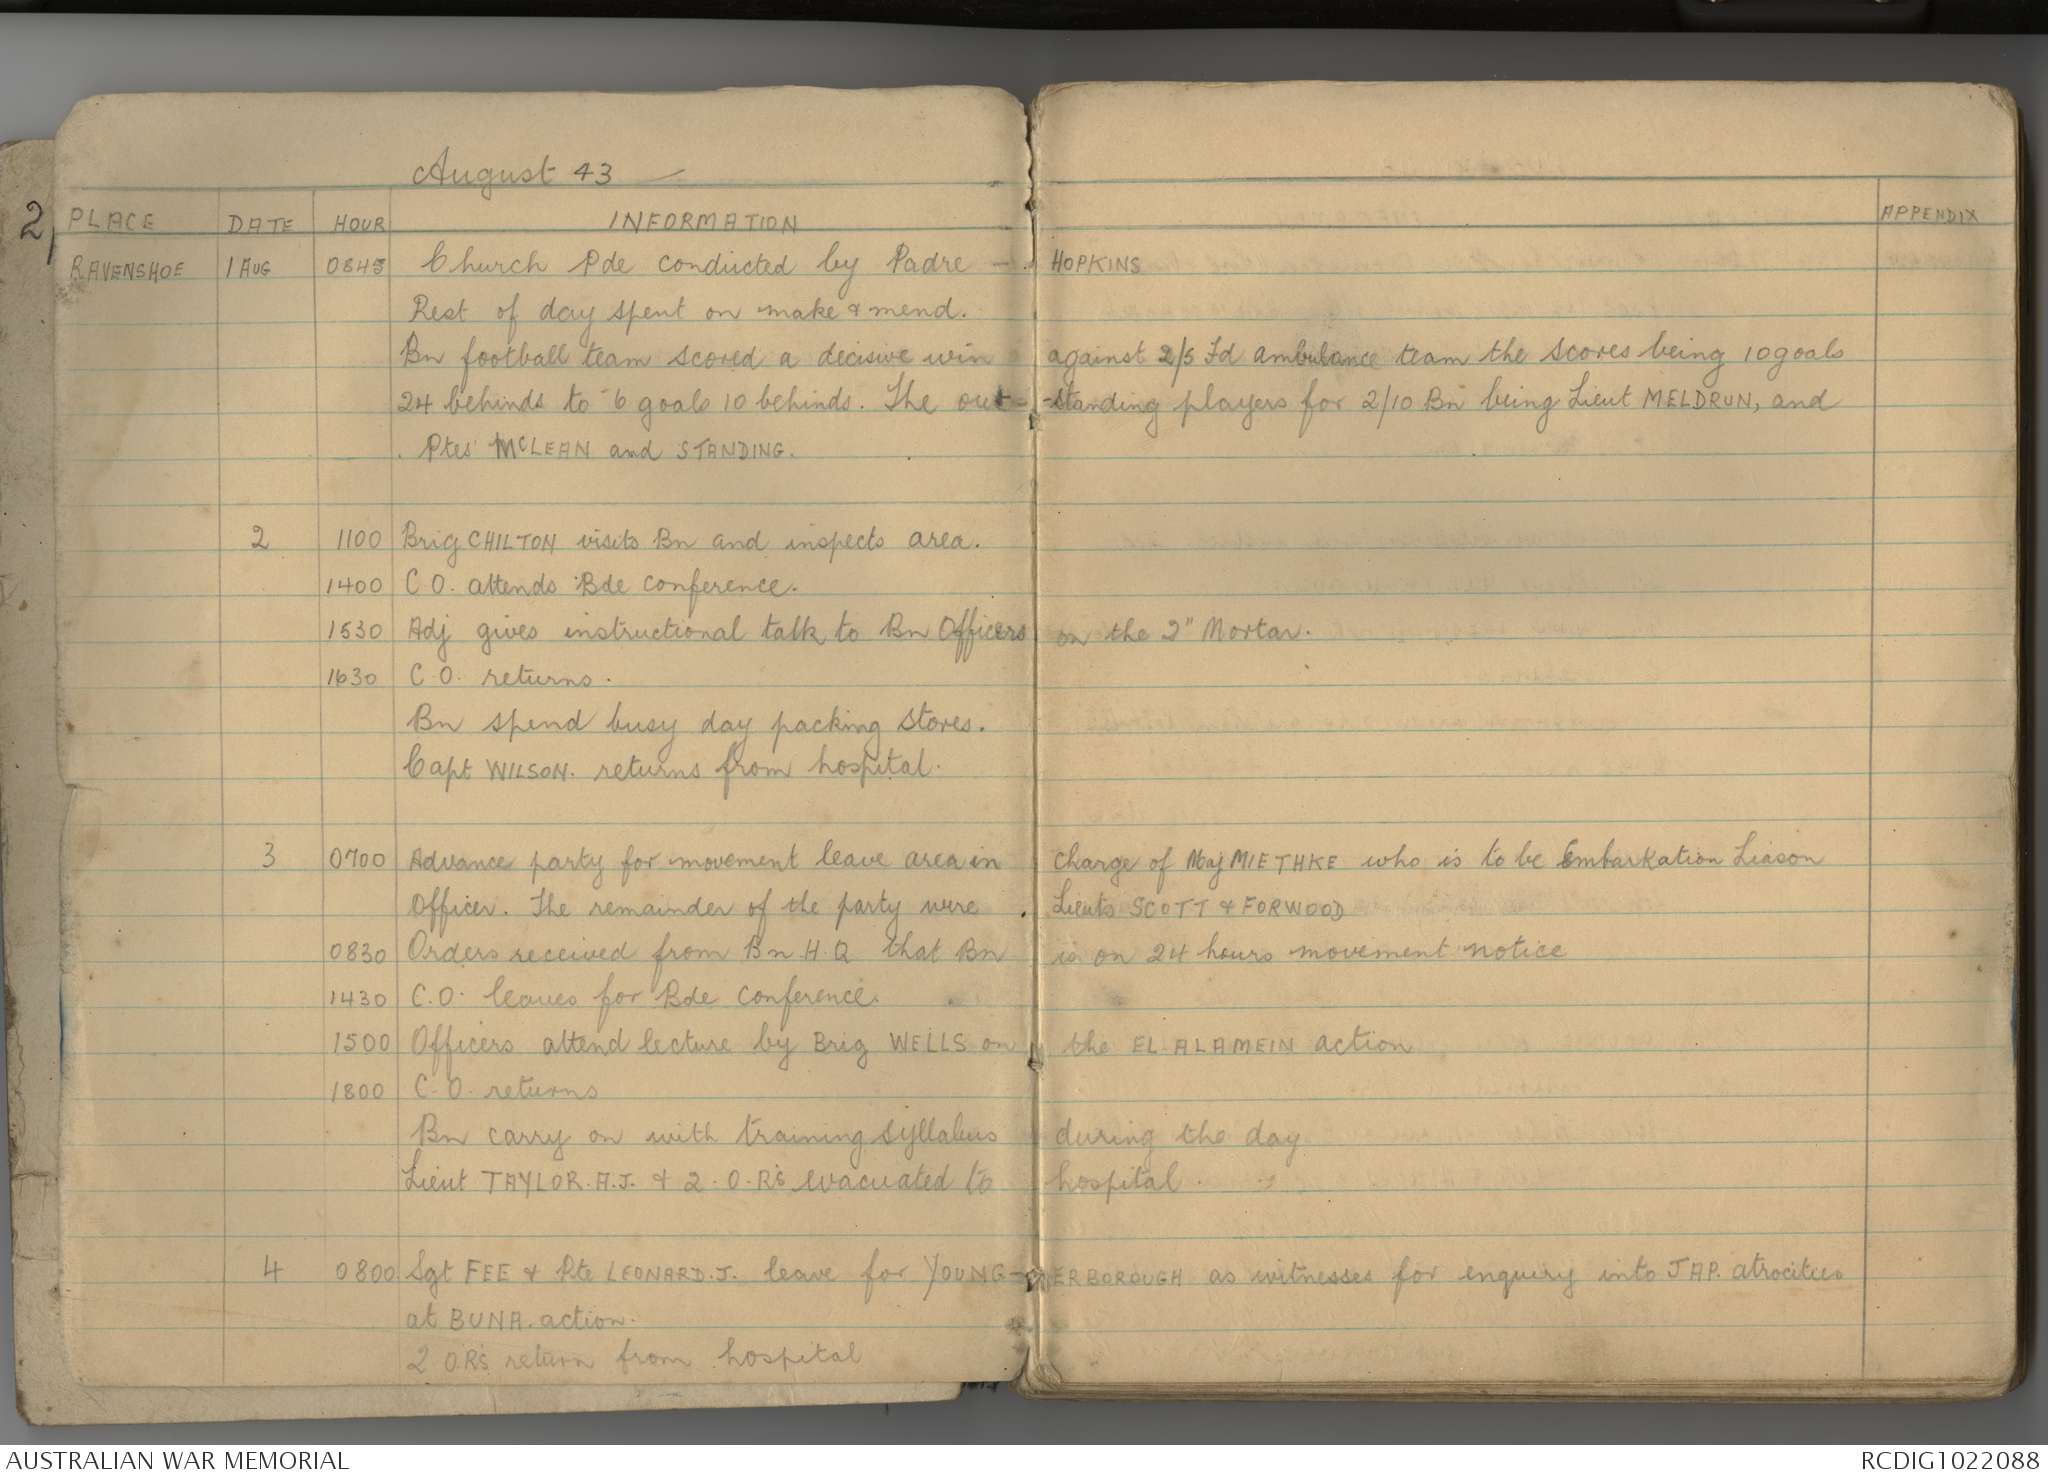 August 43
2
PLACE DATE HOUR INFORMATION APPENDIX
RAVENSHOE 1 AUG 0845 Church Pde conducted by Padre - HOPKINS
Rest of day spent on make & mend.
Bn football team scored a decisive win against 2/5 Fd ambulance team the scores being 10 goals
24 behinds to 6 goals 10 behinds. The out--standing players for 2/10 Bn being Lieut MELDRUN, and
Ptes McLEAN and STANDING.
2 1100 Brig CHILTON visits Bn and inspects area.
1400 C O. attends Bde conference.
1530 Adj gives instructional talk to Bn Officers on the 2" Mortar.
1630 C.O. returns.
Bn spend busy day packing stores.
Capt WILSON. returns from hospital.
3 0700 Advance party for movement leave area in charge of Maj MIETHKE who is to be Embarkation Liason
Officer. The remainder of the party were Lieuts SCOTT & FORWOOD
0830 Orders received from Bn H.Q that Bn is on 24 hours movement notice
1430 C.O. leaves for Bde Conference.
1500 Officers attend lecture by Brig WELLS on the EL ALAMEIN action
1800 C.O. returns
Bn carry on with training syllabus during the day
Lieut TAYLOR.A.J. & 2.O.R's evacuated to hospital.
4 0800 Sgt FEE & Pte LEONARD.J. leave for YOUNG-ERBOROUGH as witnesses for enquiry into JAP. atrocities
at BUNA. action.
2 O.R's return from hospital
AUSTRALIAN WAR MEMORIAL RCDIG1022088